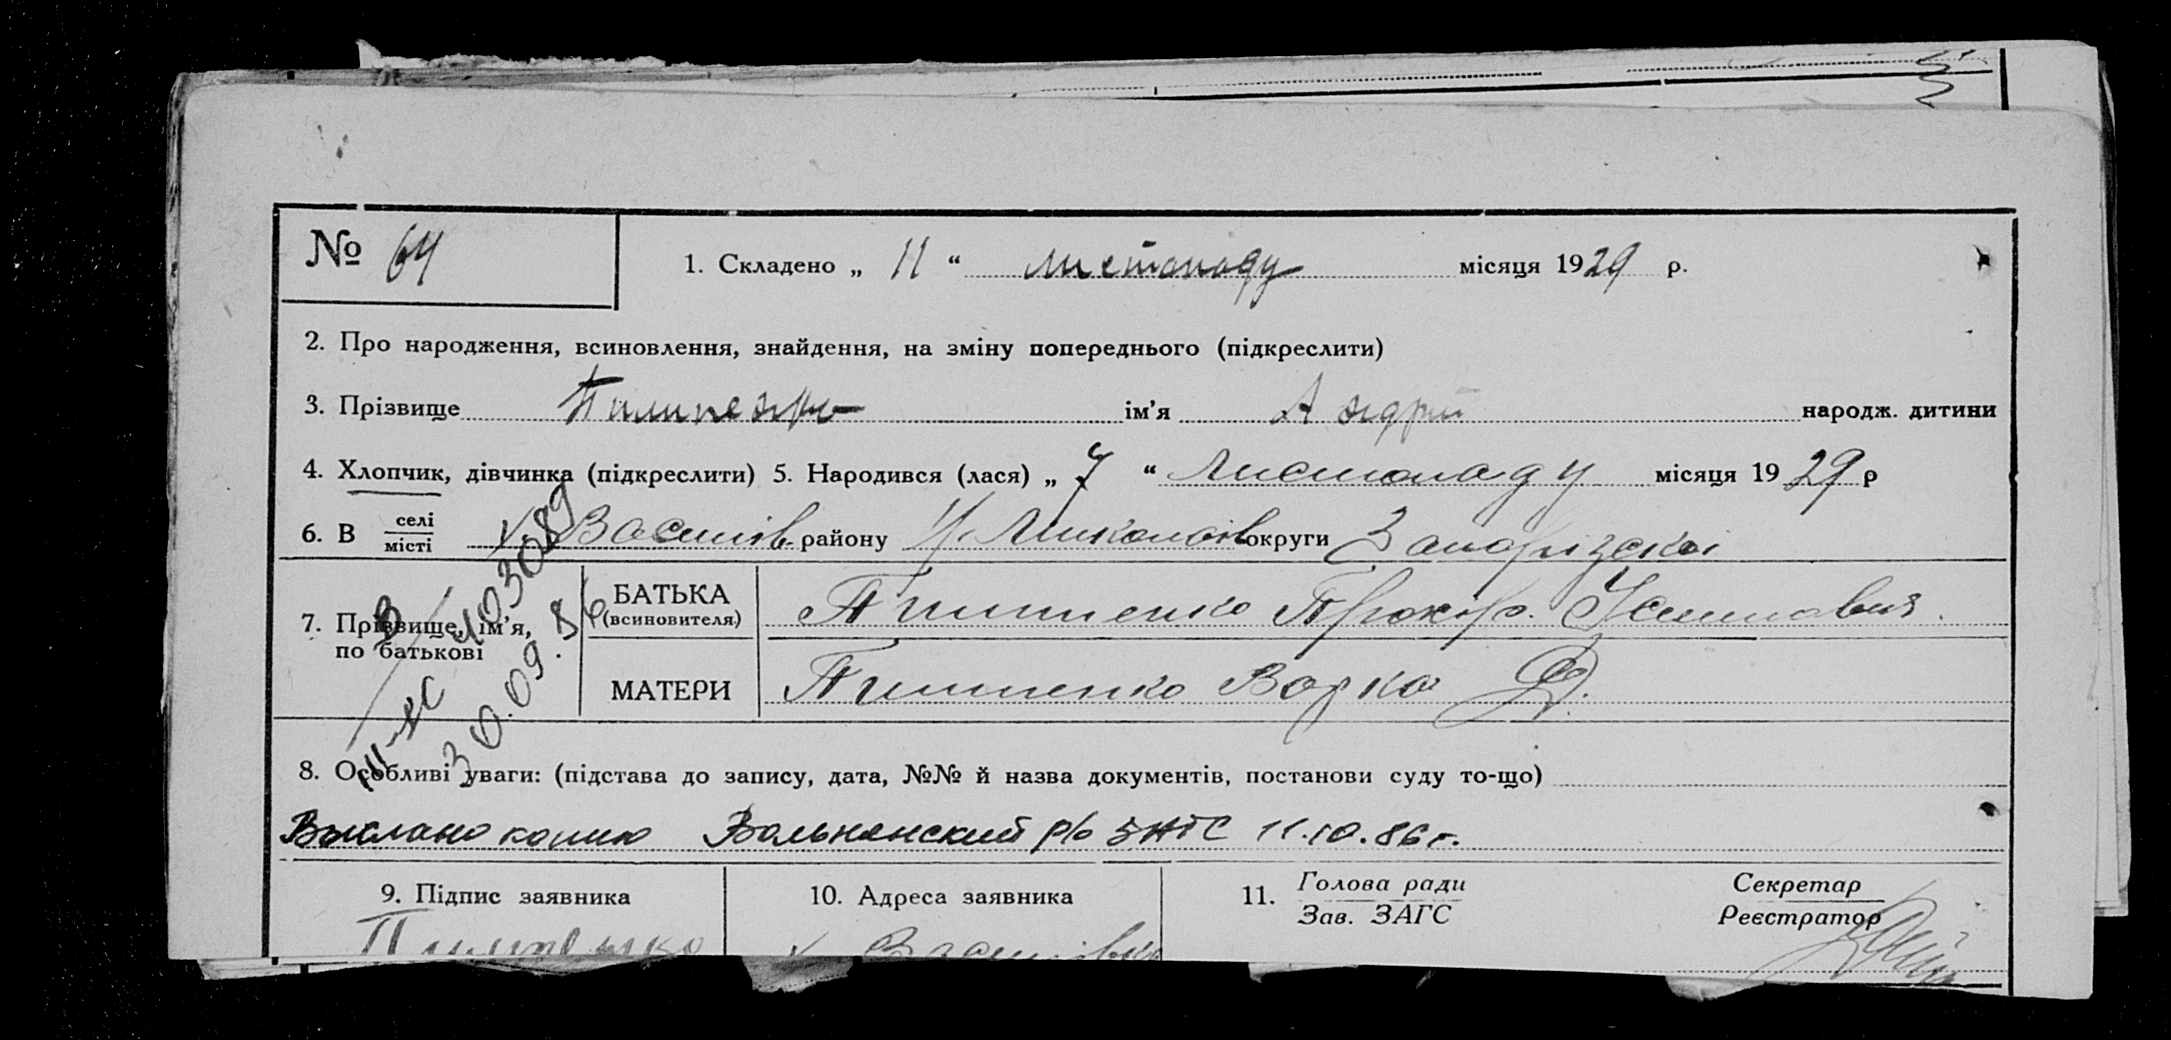 № 64
1. Складено „ 11 “ листопаду місяця 1929 р.
2. Про народження, всиновлення, знайдення, на зміну попереднього (підкреслити)
3. Прізвище Пилипенко ім’я Андрій народж. дитини
4. Хлопчик, дівчинка (підкреслити) 5. Народився (лася) „ 7 “ Листопаду місяця 1929 р
6. В селі місті х. Василів. району Н. Миколаїв округи Запорізскої
7. Прізвище, ім’я, по батькові
БАТЬКА (всиновителя) Пилипенко Прокор.
МАТЕРИ Пилипенко Варка
III-ЖС 403089
30.09.86
8. Особливі уваги: (підстава до запису, дата, №№ й назва документів, постанови суду то-що)
Выслано копию Вольнянский р/о ЗАГС 11.10.86г.
9. Підпис заявника 10. Адреса заявника 11. Голова ради Зав. ЗАГС Секретар Реєстратор
Пилипенко х Василівка